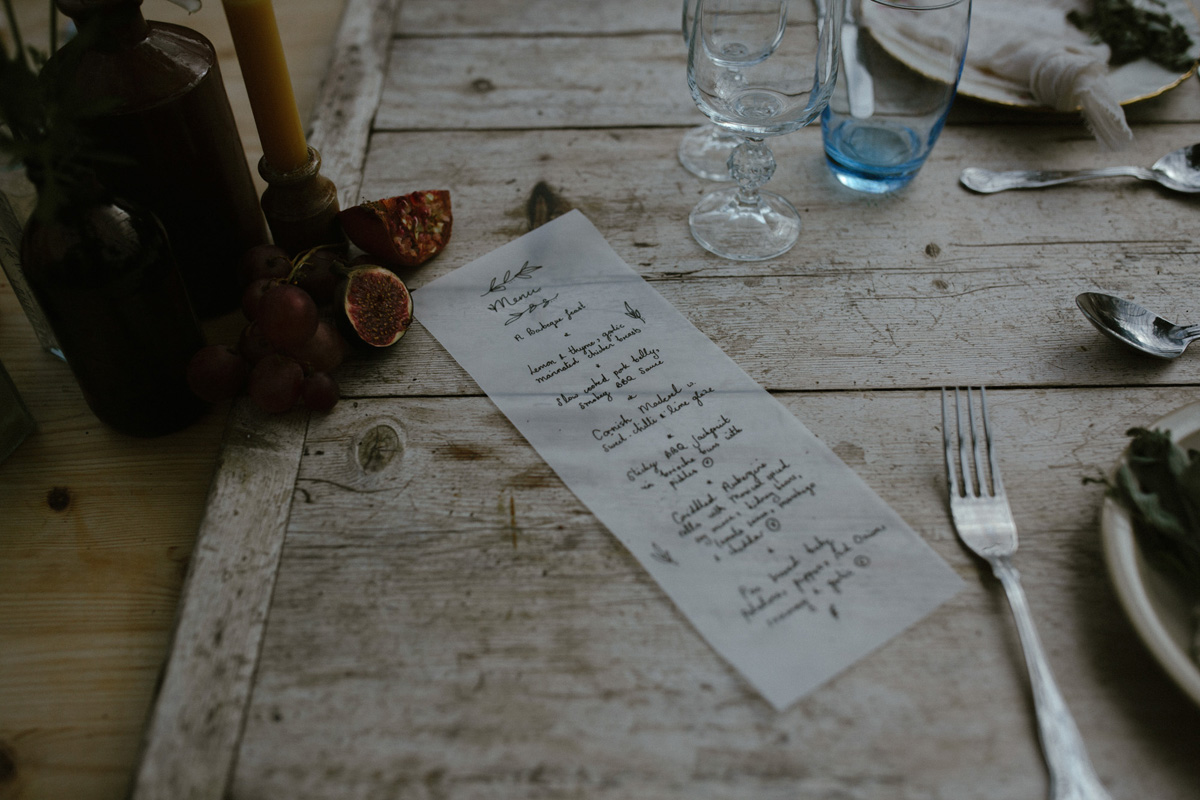 Menu
A Barbeque feast
Lemon & thyme, garlic
marinated chicken breasts
Slow cooked pork belly,
Smokey BBQ Sauce
Cornish Mackerel w
sweet chilli & lime glaze
Sticky BBQ Jackfruit
in brioche buns with
pickles Ⓥ
Griddled Aubergine
rolls with
kidney beans,
tomato sauce,
& cheddar Ⓥ
Pan roasted baby
potatoes, peppers, red onions
rosemary & garlic Ⓥ